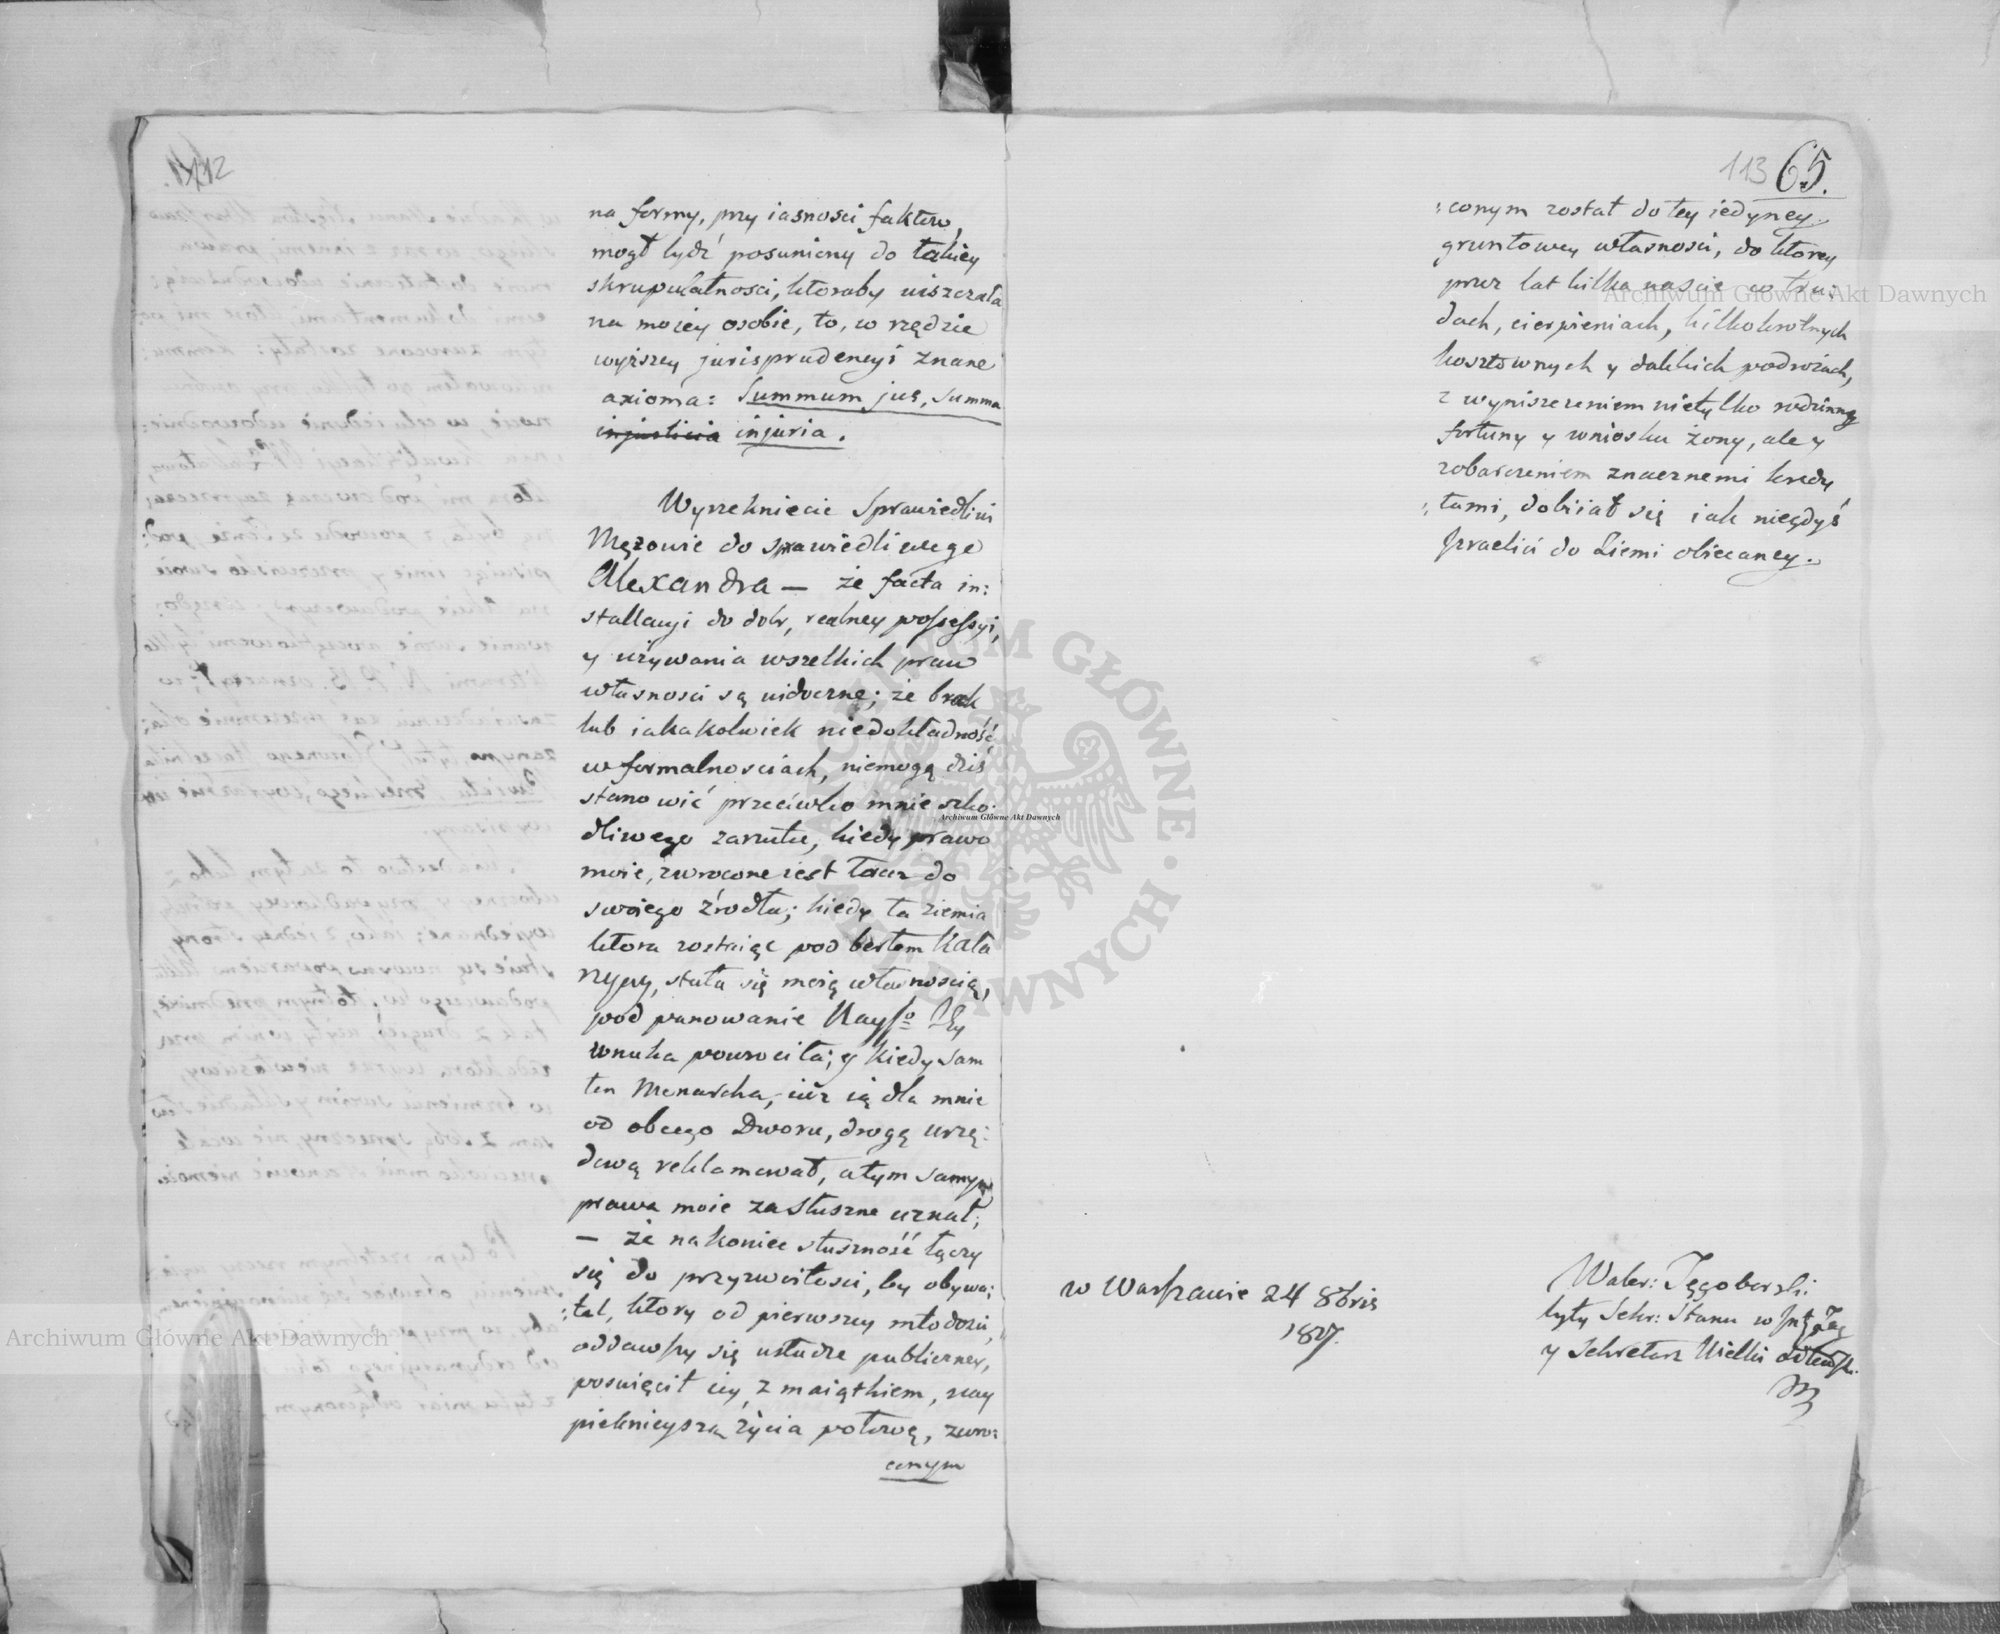 112
na formy, przy iasnosci faktow,
mogł bydź posuniony do takiey
skrupulatnosci, ktoraby uiszczała
na moiey osobie, to, w rzędzie
wyższey jurisprudencyi znane
axioma: Summum jus, summa
injusticia injuria.
Wyrzekniecie Sprawiedliwi
Mężowie do sprawiedliwego
Alexandra — że facta in:
stallacyi do dobr, realney possessyi,
y używania wszelkich praw
własnosci są widoczne; że brak
lub iakakolwiek niedokładność
w formalnosciach, niemogą dziś
stanowić przeciwko mnie szko:
dliwego zarzutu, kiedy prawo
moie, zwrocone iest teraz do
swoiego źrodła; kiedy ta ziemia
ktora zostaiąc pod berłem Kata
rzyny, stała się moią własnoscią,
pod panowanie Jey
wnuka powrociła; y kiedy sam
ten Monarcha, już ią dla mnie
od obcego Dworu, drogą urzę:
dową reklamował, a tym samym
prawa moie za słuszne uznał;
— że nakoniec słuszność łączy
się do przyzwoitosci, by obywa:
:tel, ktory od pierwszey młodosci,
oddawszy się usłudze publiczney,
poswięcił iey z maiątkiem, nay
pieknieyszą życia połowę, zwro:
conym
113 65.
:conym został do tey iedyney
gruntowey własnosci, do ktorey
przez lat kilkanascie w tru:
dach, cierpieniach, kilkokrotnych
kosztownych y dalekich podrożach,
z wyniszczeniem nietylko rodzinney
fortuny y wniosku żony, ale y
zobarczeniem znacznemi kredy
:tami, dobiiał się iak niegdyś
Izraelici do Ziemi obiecaney.
w Warszawie 24 8bris
1807.
Waler: Tęgoborski
były Sekr: Stanu w
y Sekretarz Wielki
Archiwum Główne Akt Dawnych
Archiwum Główne Akt Dawnych
Archiwum Główne Akt Dawnych
ARCHIWUM GŁÓWNE · AKT DAWNYCH ·